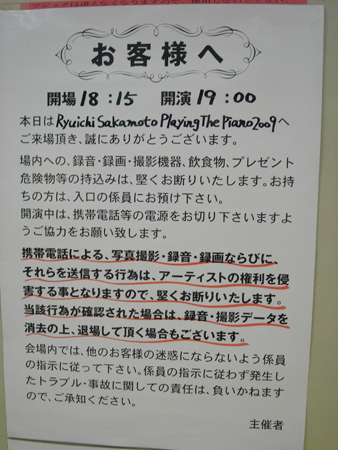 お客様へ
開場 18:15 開演 19:00
本日は Ryuichi Sakamoto Playing The Piano 2009 へ
ご来場頂き、誠にありがとうございます。
場内への、録音・録画・撮影機器、飲食物、プレゼント
危険物等の持込みは、堅くお断りいたします。お持
ちの方は、入口の係員にお預け下さい。
開演中は、携帯電話等の電源をお切り下さいますよ
うご協力をお願い致します。
携帯電話による、写真撮影・録音・録画ならびに、
それらを送信する行為は、アーティストの権利を侵
害する事となりますので、堅くお断りいたします。
当該行為が確認された場合は、録音・撮影データを
消去の上、退場して頂く場合もございます。
会場内では、他のお客様の迷惑にならないよう係員
の指示に従って下さい。係員の指示に従わず発生し
たトラブル・事故に関しての責任は、負いかねますの
で、ご承知ください。
主催者